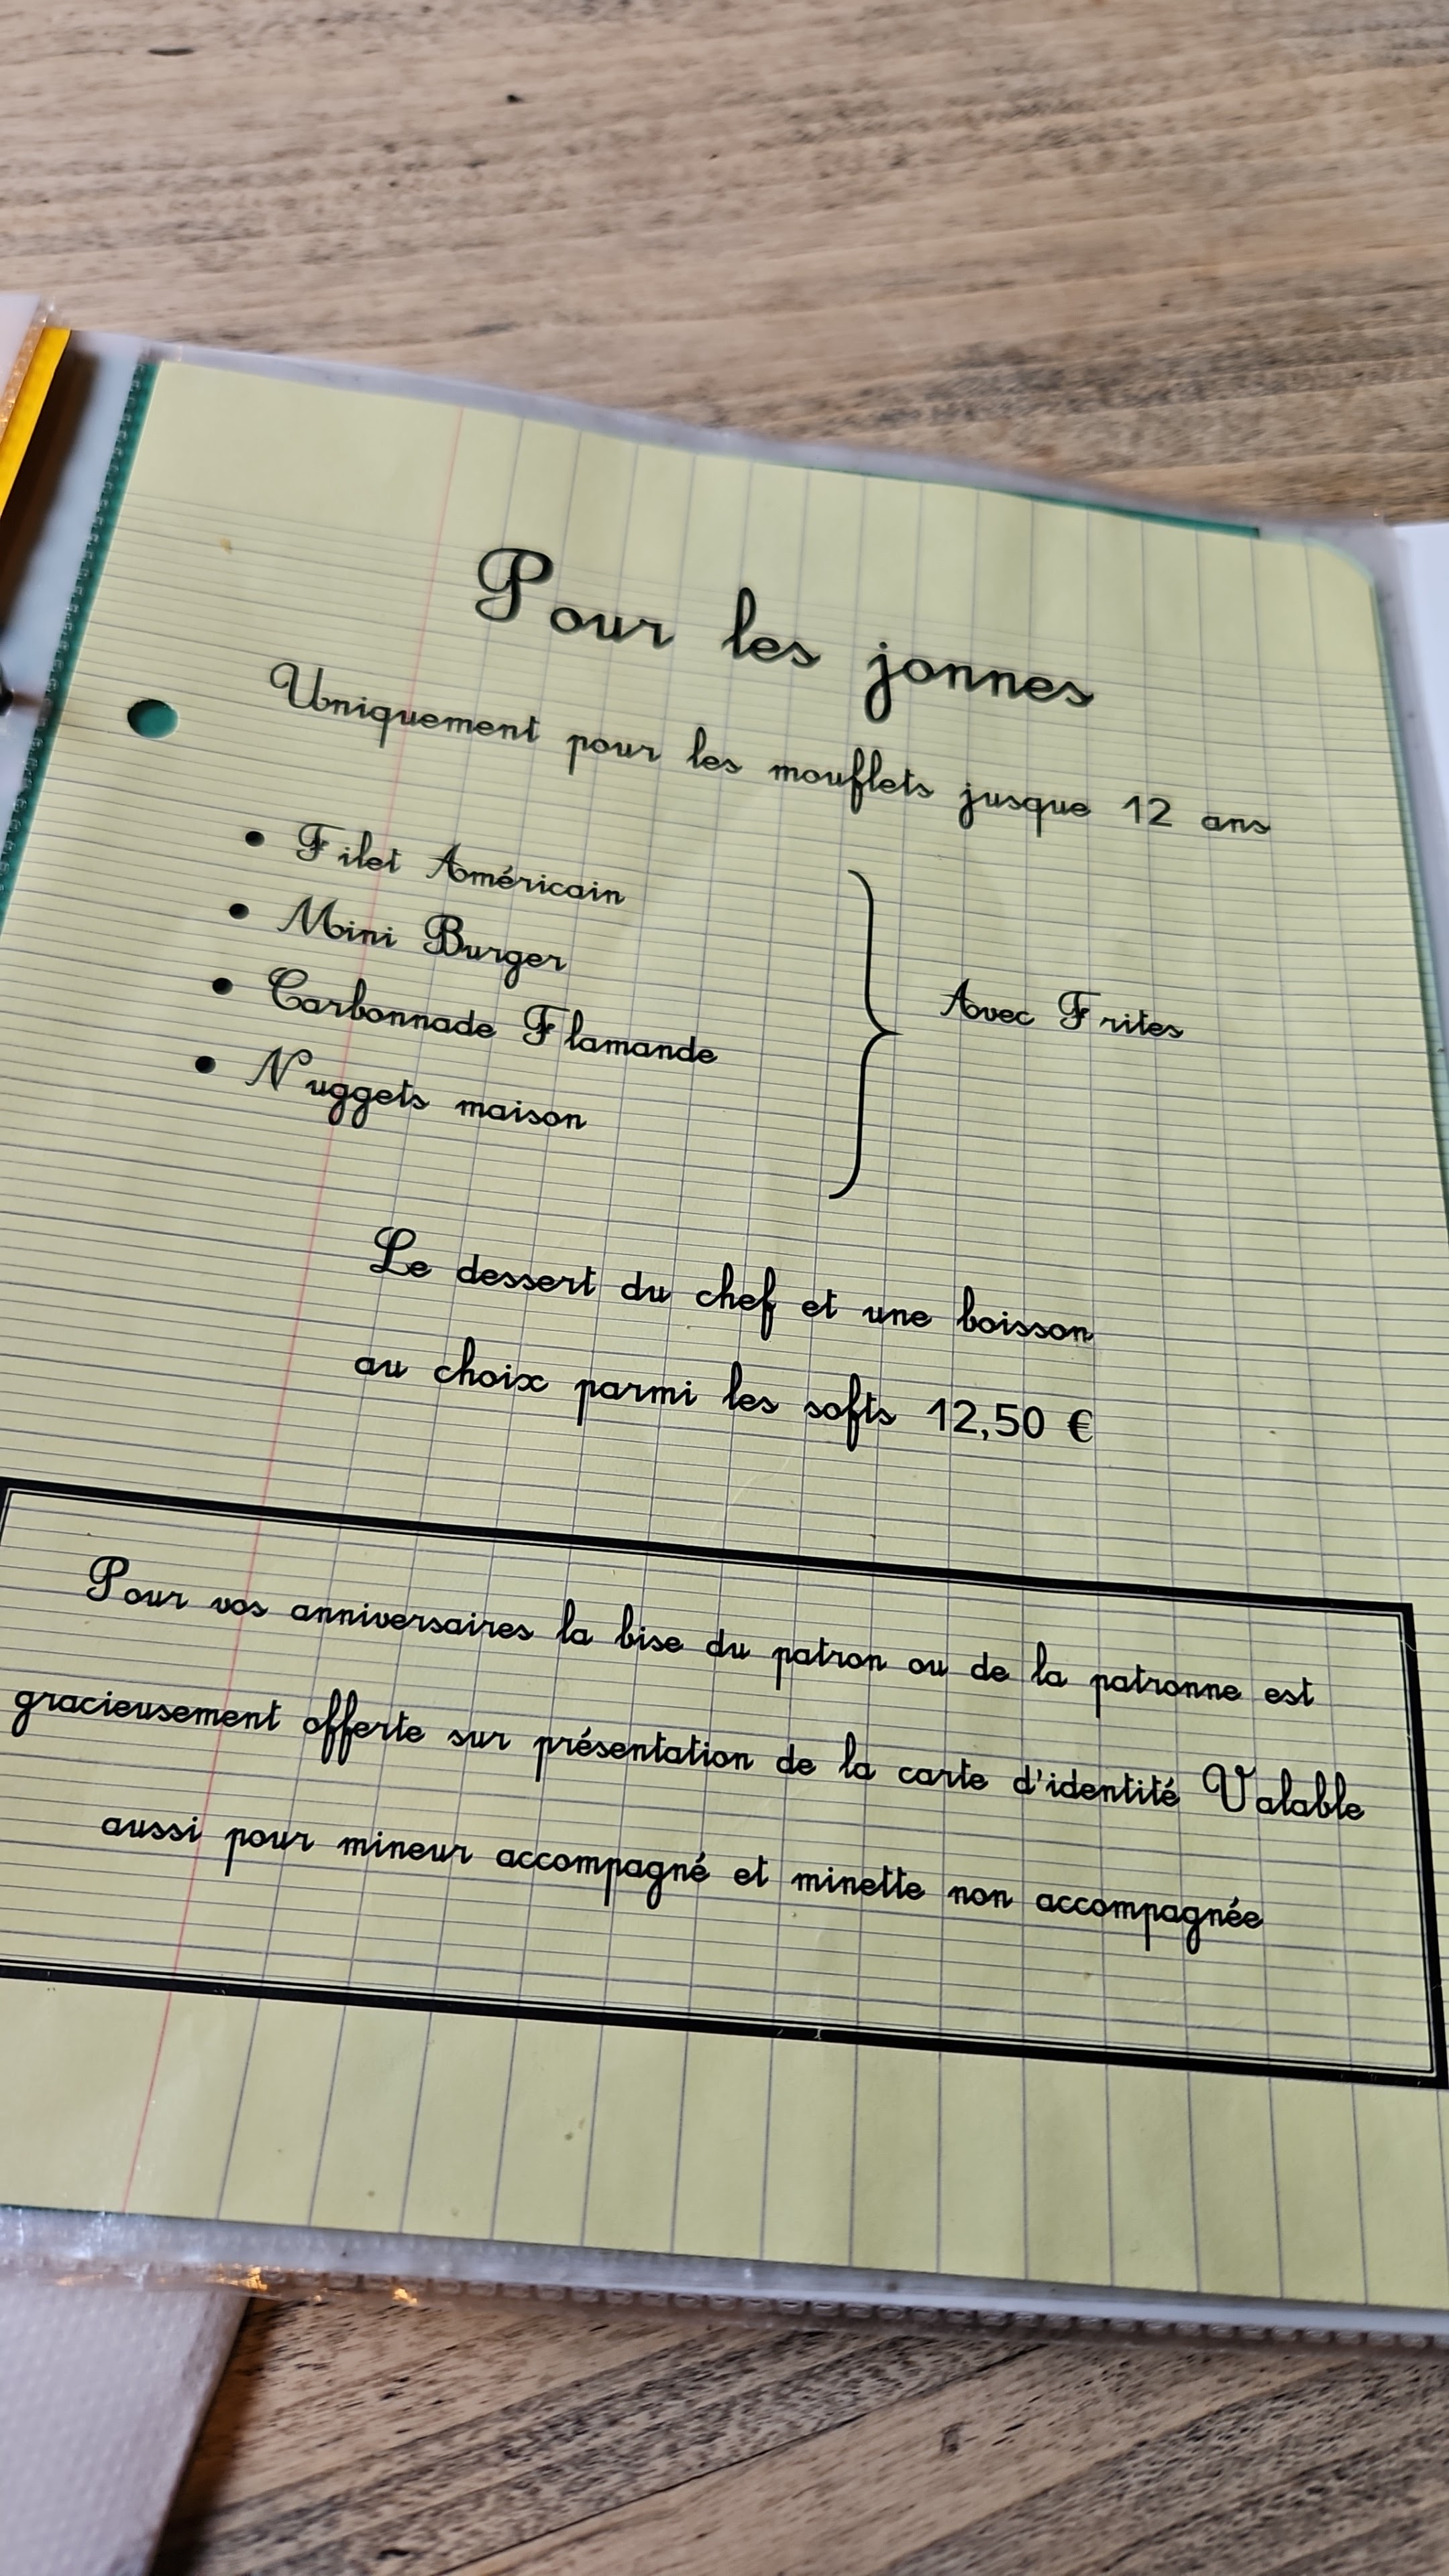 Pour les jonnes
Uniquement pour les mouflets jusque 12 ans
• Filet Américain
• Mini Burger
• Carbonnade Flamande
• Nuggets maison
Avec Frites
Le dessert du chef et une boisson
au choix parmi les softs 12,50 €
Pour vos anniversaires la bise du patron ou de la patronne est
gracieusement offerte sur présentation de la carte d'identité Valable
aussi pour mineur accompagné et minette non accompagnée